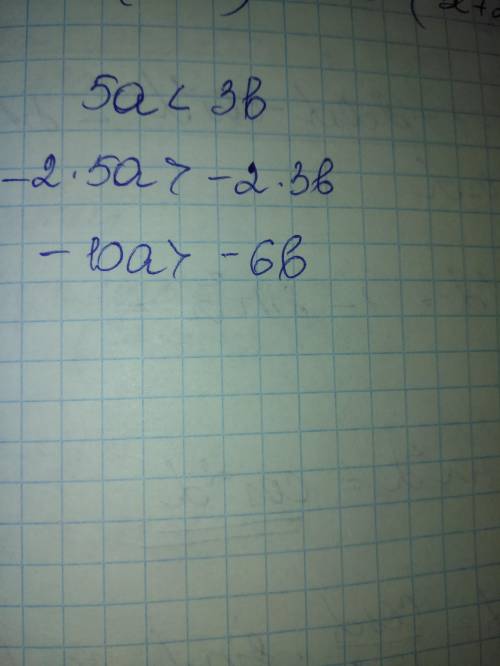 5a < 3b
-2·5a > -2·3b
-10a > -6b